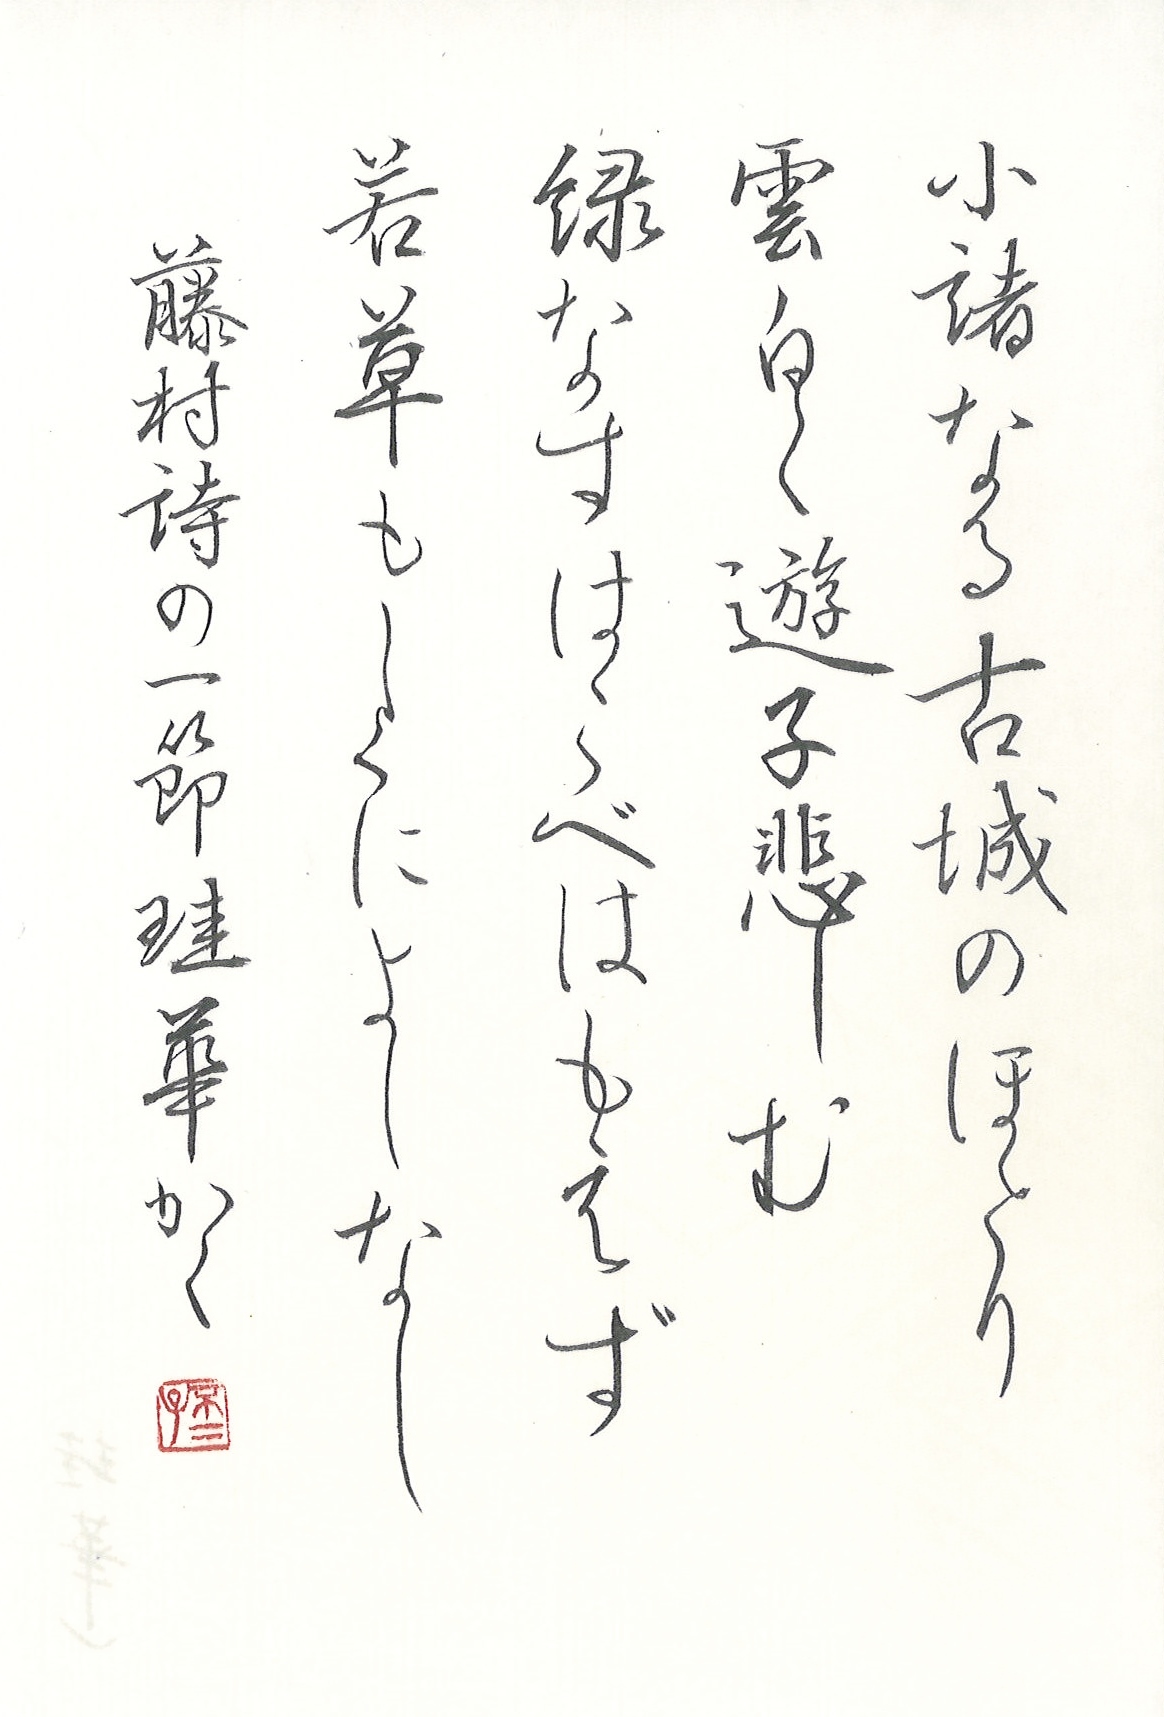 小諸なる古城のほとり
雲白く遊子悲しむ
緑なすはこべはもえず
若草もしくによしなし
藤村詩の一節 珪華かく